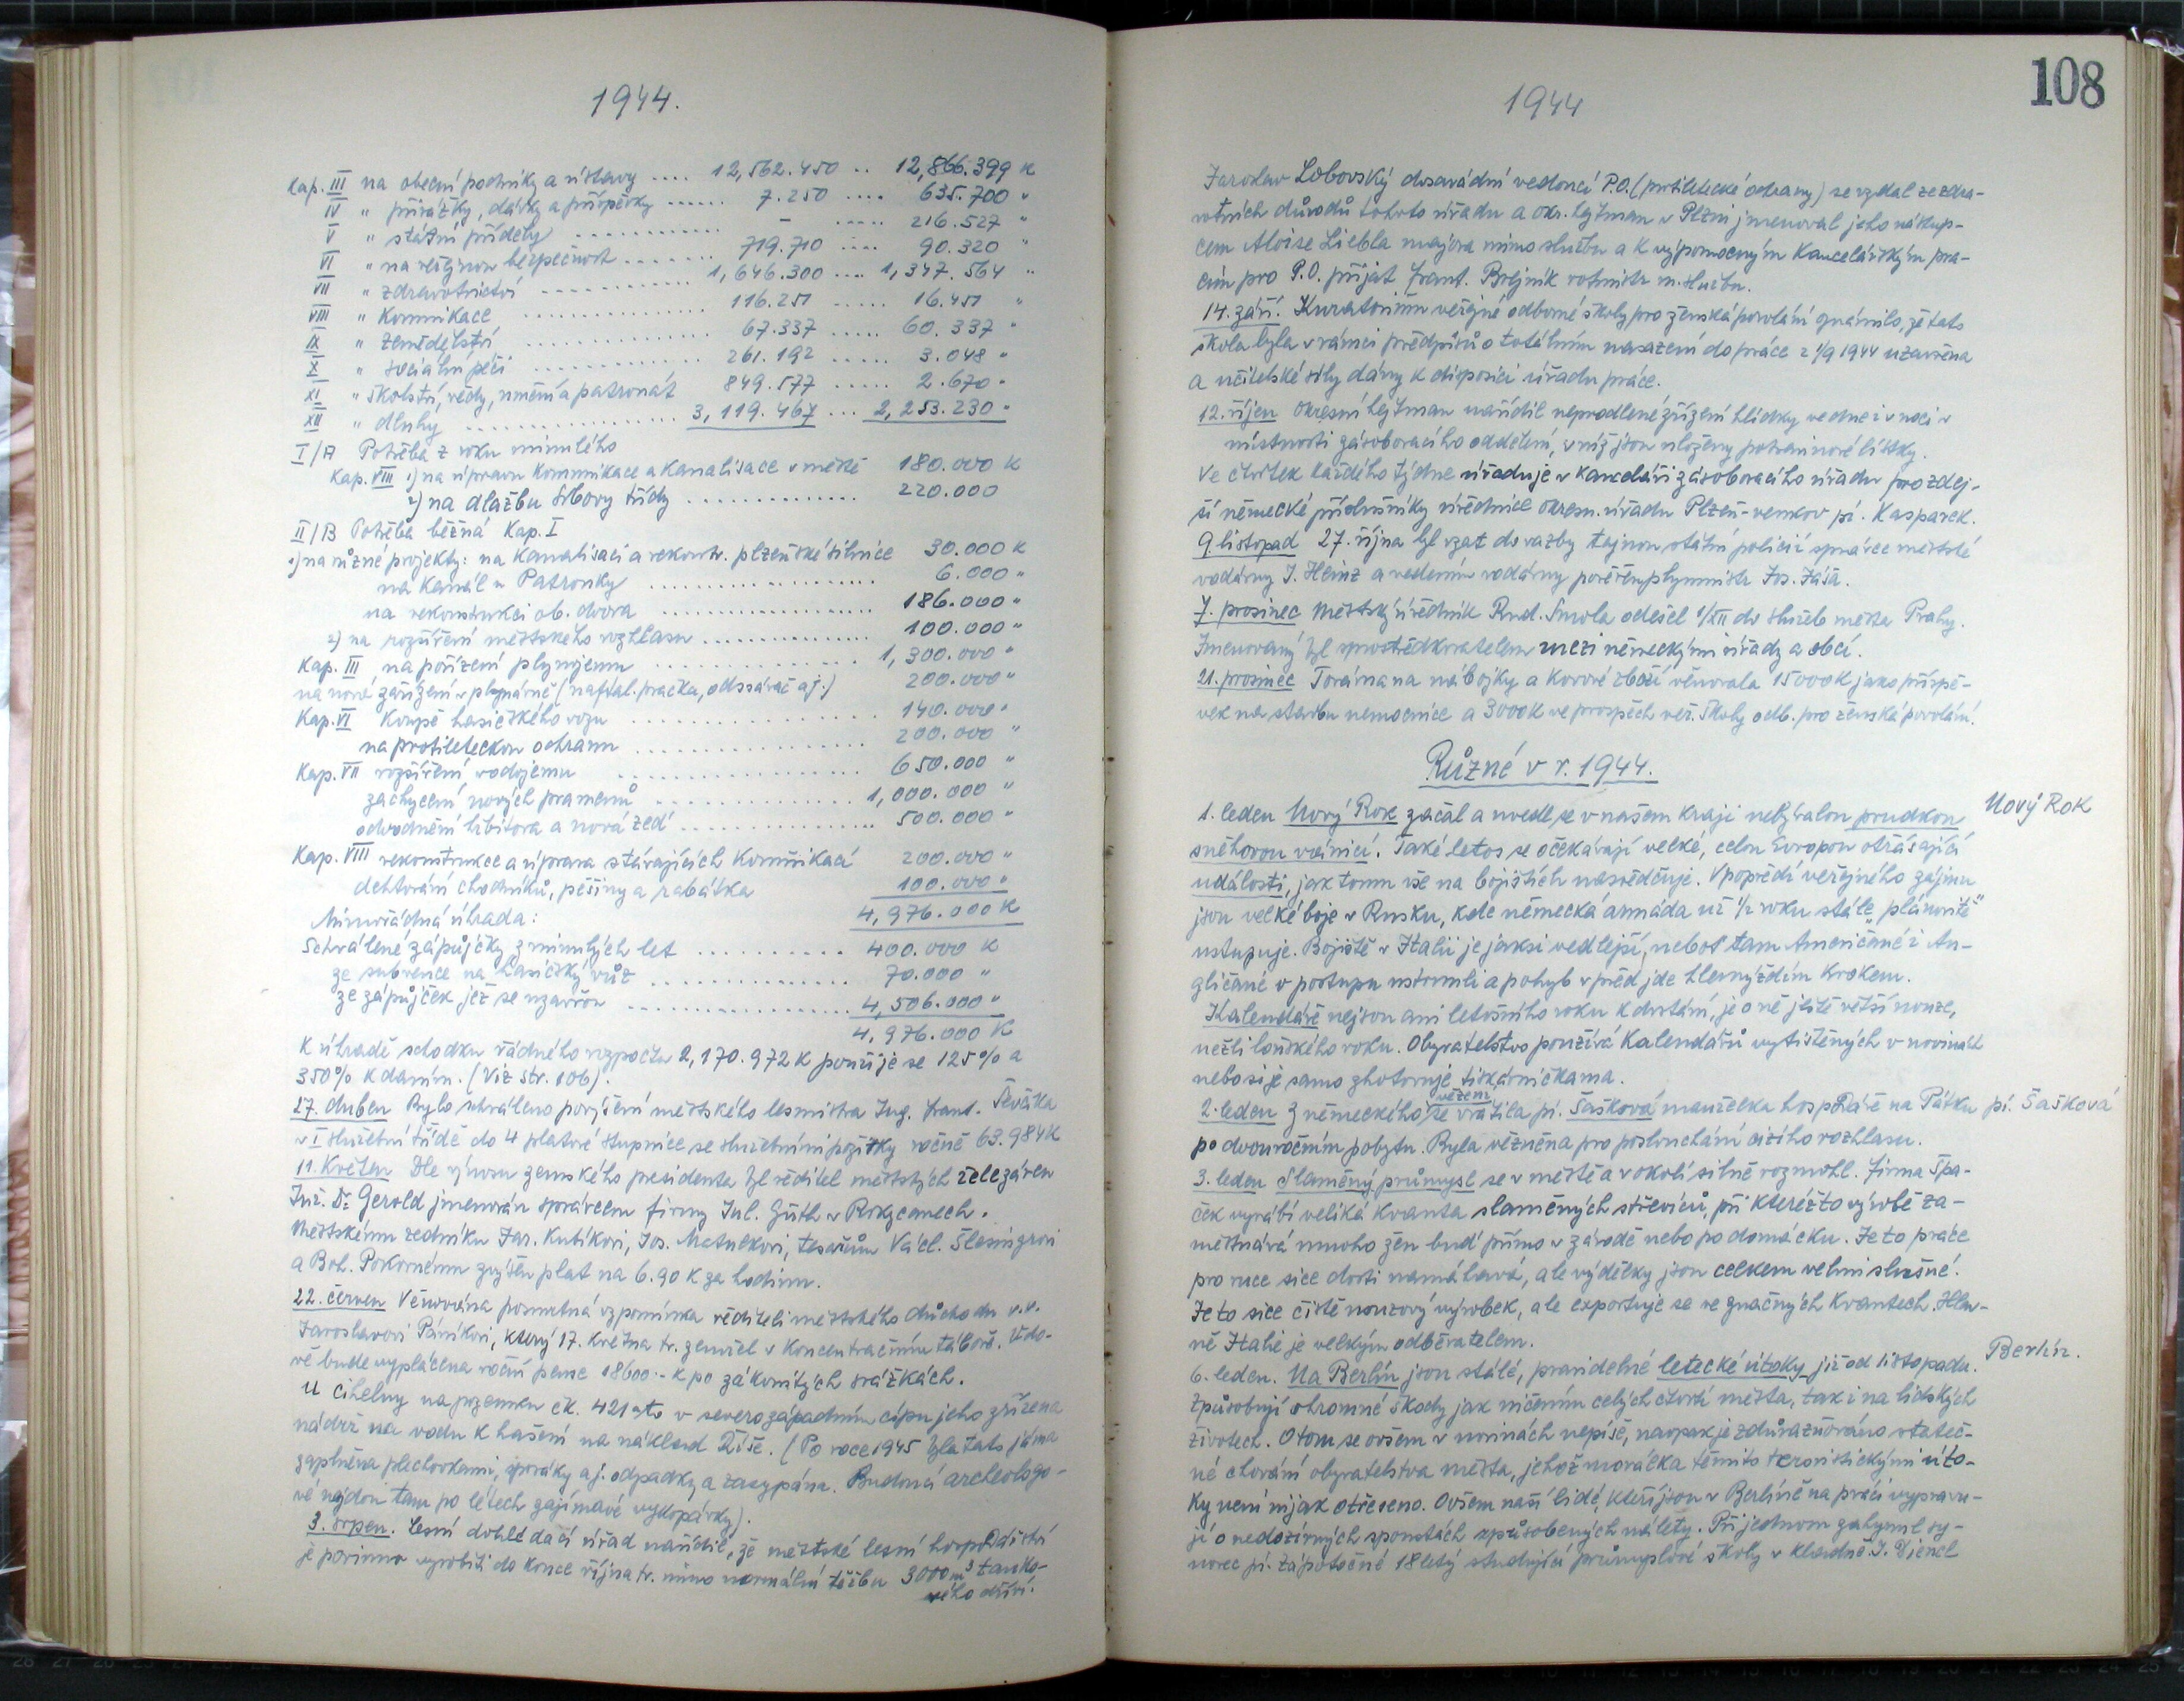 1944.
Kap. III na obecní podniky a ústavy .... 12,562.450 .. 12,866.399 K
IV " přirážky, dávky a příspěvky ...... 7.250 .... 635.700 "
V " státní příděly ............ - ..... 216.527 "
VI " na veřejnou bezpečnost ........ 719.710 .... 90.320 "
VII " zdravotnictví ............ 1,646.300 .... 1,347.564 "
VIII " Komunikace ............ 116.251 ..... 16.451 "
IX " zemědělství ............ 67.337 ..... 60.337 "
X " sociální péči ............ 261.192 ..... 3.048 "
XI " školství, vědy, umění a patronát 849.577 ...... 2.670 "
XII " dluhy ................. 3,119.467 ... 2,253.230 "
I/A Potřeba z roku minulého
Kap. VIII 1) na úpravu Komunikace a Kanalisace v městě 180.000 K
2) na dlažbu Srbovy třídy ............... 220.000
II/B Potřeba běžná Kap. I
1) na různé projekty: na Kanalisaci a rekonstr. plzeňské silnice 30.000 K
na Kanál u Patronky .................... 6.000 "
na rekonstrukci ob. dvora .................... 186.000 "
2) na rozšíření městského rozhlasu ............... 100.000 "
Kap. III na pořízení plynojemu ............... 1,300.000 "
na nové zařízení v plynárně (naftal. pračka, odssávač aj.) 200.000 "
Kap. VI Koupě hasičského vozu ................. 140.000 "
na protileteckou ochranu ................. 200.000 "
Kap. VII rozšíření vodojemu ................. 650.000 "
zachycení nových pramenů ............... 1,000.000 "
odvodnění hřbitova a nová zeď ............... 500.000 "
Kap. VIII rekonstrukce a úprava stávajících Komunikací 200.000 "
dehtování chodníků, pěšiny a rabátka 100.000 "
Mimořádná úhrada: 4,976.000 K
Schválené zápůjčky z minulých let .......... 400.000 K
ze subvence na hasičský vůz ............... 70.000 "
ze zápůjček jež se uzavřou ................. 4,506.000 "
4,976.000 K
K úhradě schodku řádného rozpočtu 2,170.972 K použije se 125% a
350% K daním. (Viz str. 106).
27. duben Bylo schváleno povýšení městského lesmistra Ing. Frant. Ševčíka
v I služební třídě do 4 platové stupnice se služebními požitky ročně 63.984 K
11. Květen Dle výnosu zemského presidenta byl ředitel městských železáren
Inž. Dr. Gerold jmenován správcem firmy Jul. Güth v Rokycanech.
Městskému zedníku Jar. Kutíkovi, Jos. Matuškovi, tesařům Václ. Šlesingrovi
a Boh. Pokornému zvýšen plat na 6.90 K za hodinu.
22. červen Věnována posmutná vzpomínka řediteli městského důchodu v.v.
Jaroslavovi Páníkovi, který 17. května tr. zemřel v Koncentračním táboře. Vdo-
vě bude vyplácena roční pense 18600.- K po zákonitých srážkách.
U cihelny na pozemku čk. 421 v severozápadním cípu jeho zřízena
nádrž na vodu k hašení na náklad Říše. (Po roce 1945 byla tato jáma
zaplněna plechovkami, sporáky aj. odpadky a zasypána. Budoucí archeologo-
vé najdou tam po létech zajímavé vykopávky).
3. srpen. Lesní dohlédací úřad nařídil, že městské lesní hospodářství
je povinno vyrobiti do konce října tr. mimo normální těžbu 3000 m³ tanko-
vého dříví.
108
1944
Jaroslav Lobovský dosavádní vedoucí P.O. (protiletecké ochrany) se vzdal ze zdra-
votních důvodů tohoto úřadu a okr. hejtman v Plzni jmenoval jeho nástup-
cem Aloise Liebla majora mimo službu a k výpomocným Kancelářským pra-
cím pro P.O. přijat Frant. Brejník rotmistr m. službu.
14. září. Kuratorium veřejné odborné školy pro ženská povolání oznámilo, že tato
škola byla v rámci předpisů o totálním nasazení do práce z 1/9 1944 uzavřena
a učitelské síly dány k disposici úřadu práce.
12. říjen Okresní hejtman nařídil neprodlené zřízení hlídky ve dne i v noci v
místnosti zásobovacího oddělení, v níž jsou uloženy potravinové lístky.
Ve čtvrtek každého týdne úřaduje v kanceláři zásobovacího úřadu pro zdej-
ší německé příslušníky úřednice okresn. úřadu Plzeň-venkov pí. Kasparek.
9. listopad 27. října byl vzat do vazby tajnou státní policií správce městské
vodárny J. Heinz a vedením vodárny pověřen plynmistr Jos. Jáša.
7. prosinec Městský úředník Rud. Smola odešel 1/XII do služeb města Prahy.
Jmenovaný byl sprostředkovatelem mezi německými úřady a obcí.
21. prosinec Továrna na nábojky a Kovové zboží věnovala 15000 K jako příspě-
vek na stavbu nemocnice a 3000 K ve prospěch veř. školy odb. pro ženská povolání.
Různé v r. 1944.
1. leden Nový Rok začal a uvedl se v našem kraji nebývalou prudkou
Nový Rok
sněhovou vánicí. Také letos se očekávají velké, celou Evropou otřásající
události, jak tomu vše na bojištích nasvědčuje. V popředí veřejného zájmu
jsou velké boje v Rusku, kde německá armáda už 1/2 roku stále „plánovitě"
ustupuje. Bojiště v Italii je jaksi vedlejší, neboť tam Američané i An-
gličané v postupu ustrnuli a pohyb v před jde hlemýždím krokem.
Kalendáře nejsou ani letošního roku k dostání, je o ně ještě větší nouze,
nežli loňského roku. Obyvatelstvo používá Kalendářů vytištěných v novinách
nebo si je samo zhotovuje tiskárničkama.
2. leden Z německého vězení se vrátila pí. Šašková manželka hospodáře na Pátku
pí. Šašková
po dvouročním pobytu. Byla vězněna pro poslouchání cizího rozhlasu.
3. leden Slaměný průmysl se v městě a v okolí silně rozmohl. Firma Špa-
ček vyrábí veliká kvanta slaměných střevíců, při kteréžto výrobě za-
městnává mnoho žen buď přímo v závodě nebo po domácku. Je to práce
pro ruce sice dosti namáhavá, ale výdělky jsou celkem velmi slušné.
Je to sice čistě nouzový výrobek, ale exportuje se ve značných kvantech. Hlav-
ně Italie je velkým odběratelem.
6. leden. Na Berlín jsou stálé, pravidelné letecké útoky již od listopadu.
Berlín.
Způsobují ohromné škody jak ničením celých čtvrtí města, tak i na lidských
životech. O tom se ovšem v novinách nepíše, naopak je zdůrazňováno stateč-
né chování obyvatelstva města, jehož morálka těmito teroristickými úto-
ky není nijak otřesena. Ovšem naši lidé, kteří jsou v Berlíně na práci vypravu-
jí o nedozírných spoustách způsobených nálety. Při jednom zahynul sy-
novec pí. Zápotočné 18letý studující průmyslové školy v Kladně J. Dienel